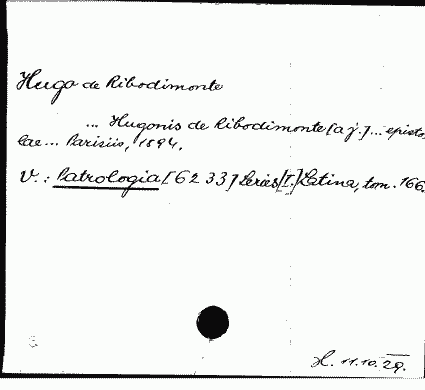 Hugo de Ribodimonte
... Hugonis de Ribodimonte [a j.] ... episto-
lae ... Parisiis, 1894.
V.: Patrologia [6233] Series [I.] Latina, tom. 166.
H. 11.10.29.